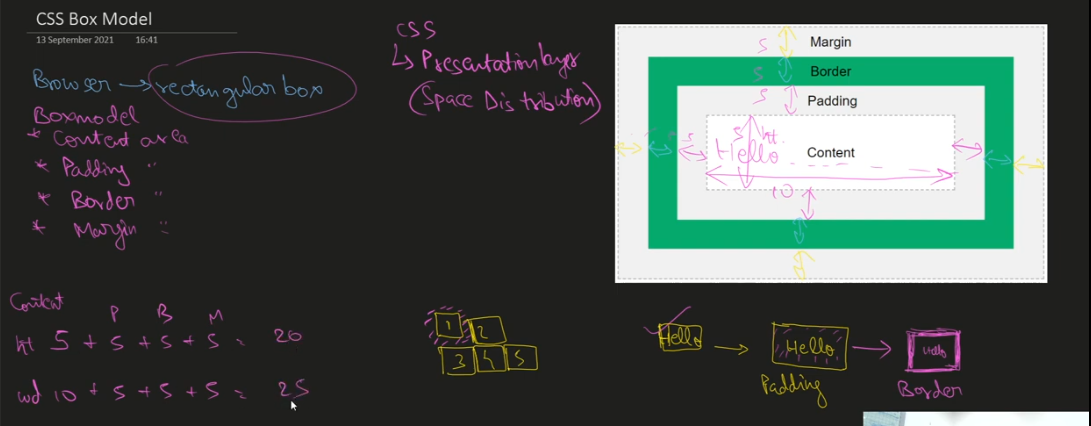 CSS Box Model
13 September 2021 16:41
Browser → rectangular box
Boxmodel
* Content area
* Padding "
* Border "
* Margin "
CSS
↳ Presentation layer
(Space Distribution)
Margin
Border
Padding
Content
Hello
ht
10
5
5
5
5
5
5
5
Content P B M
ht 5 + 5 + 5 + 5 = 20
wd 10 + 5 + 5 + 5 = 25
1 2
3 4 5
Hello → Hello → Hello
Padding Border